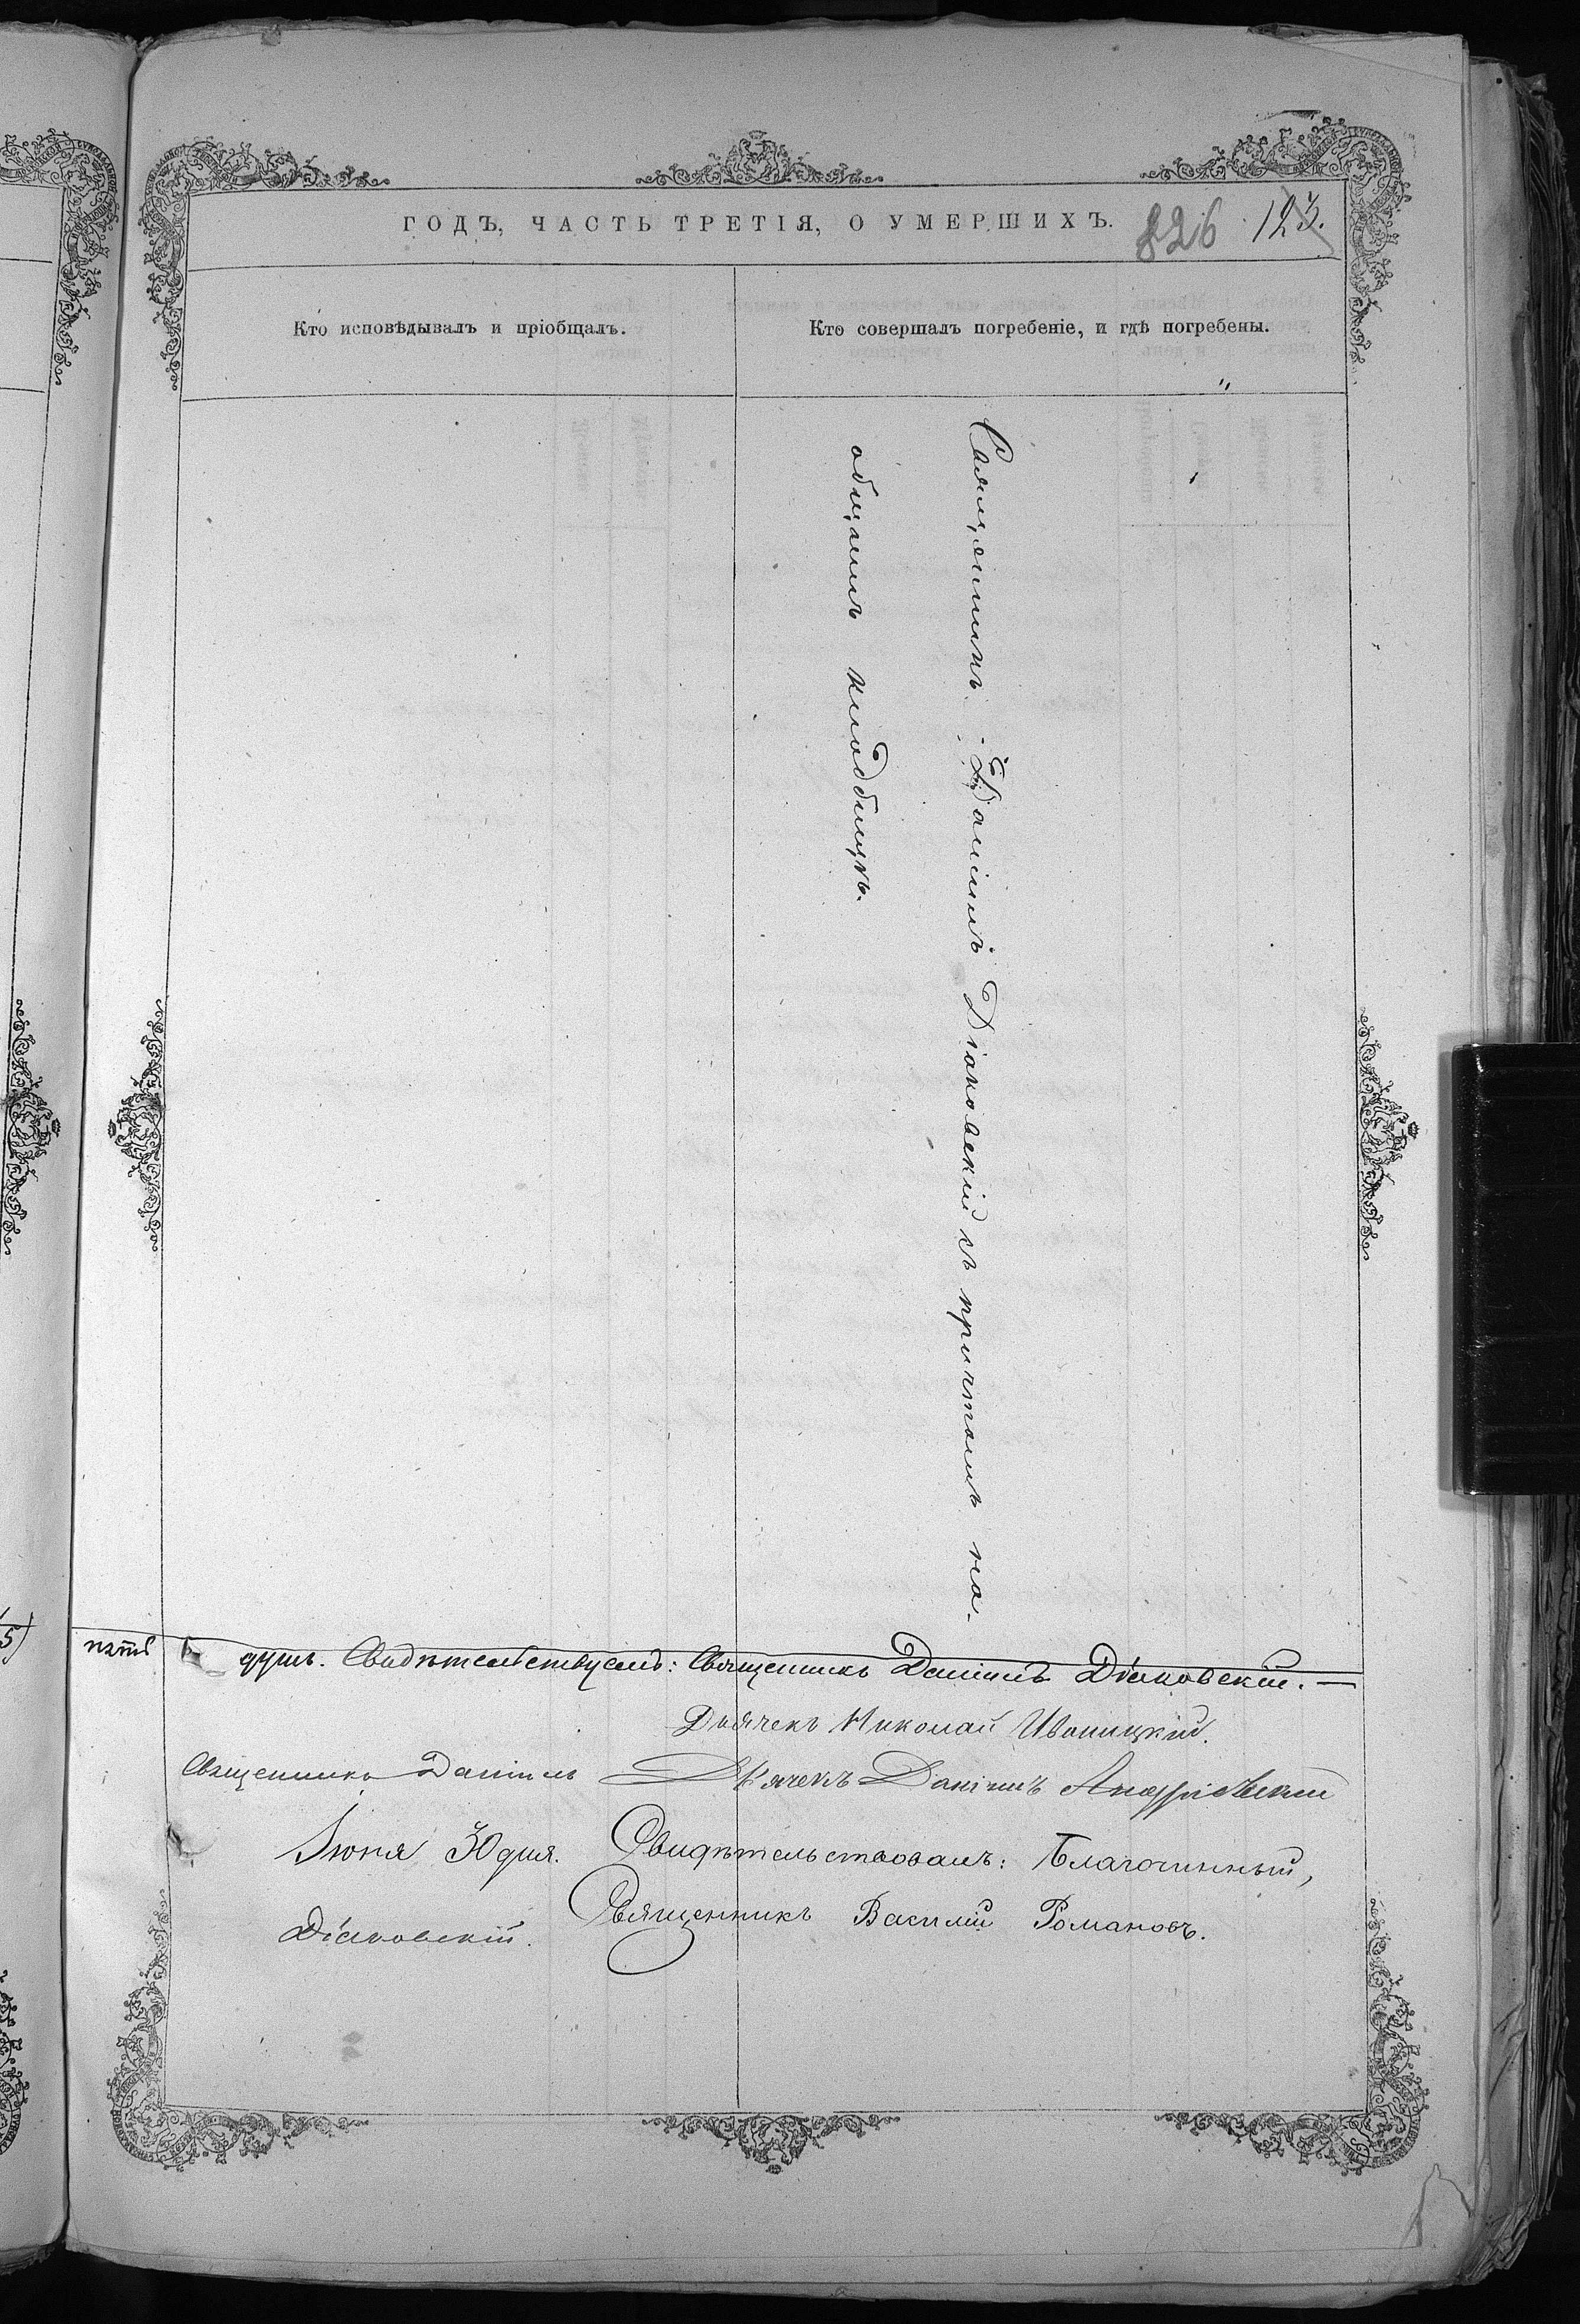 ГОДЪ, ЧАСТЬ ТРЕТІЯ, О УМЕРШИХЪ. 826 123.
Кто исповѣдывалъ и пріобщалъ.
Кто совершалъ погребеніе, и гдѣ погребены.
Священникъ Даніилъ Діаковскій съ причтомъ на
общемъ кладбищѣ.
5)
пять душъ. Свидѣтельствуемъ: Священникъ Даніилъ Діаковскій.
Дьячекъ Николай Ивоницкій.
Священникъ Даніилъ Дьячекъ Даніилъ
Іюня 30 дня. Свидѣтельствовалъ: Благочинный,
Діаковскій. Священникъ Василій Романовъ.